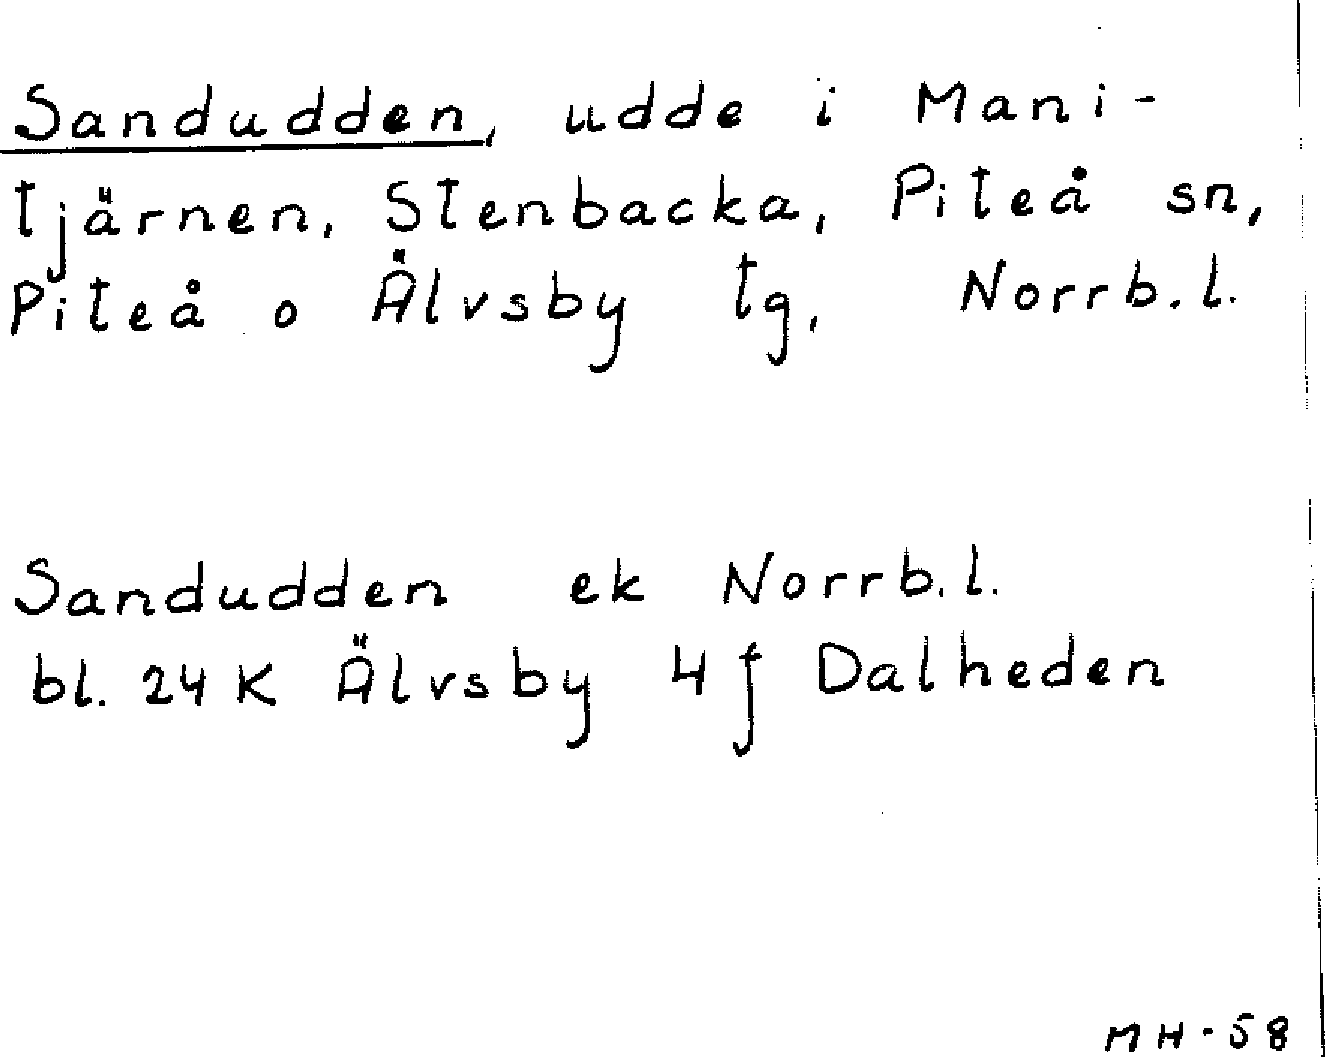 Sandudden, udde i Mani-
tjärnen, Stenbacka, Piteå sn,
Piteå o Älvsby tg, Norrb.l.
Sandudden ek Norrb.l.
bl. 24 K Älvsby 4 f Dalheden
MH-58